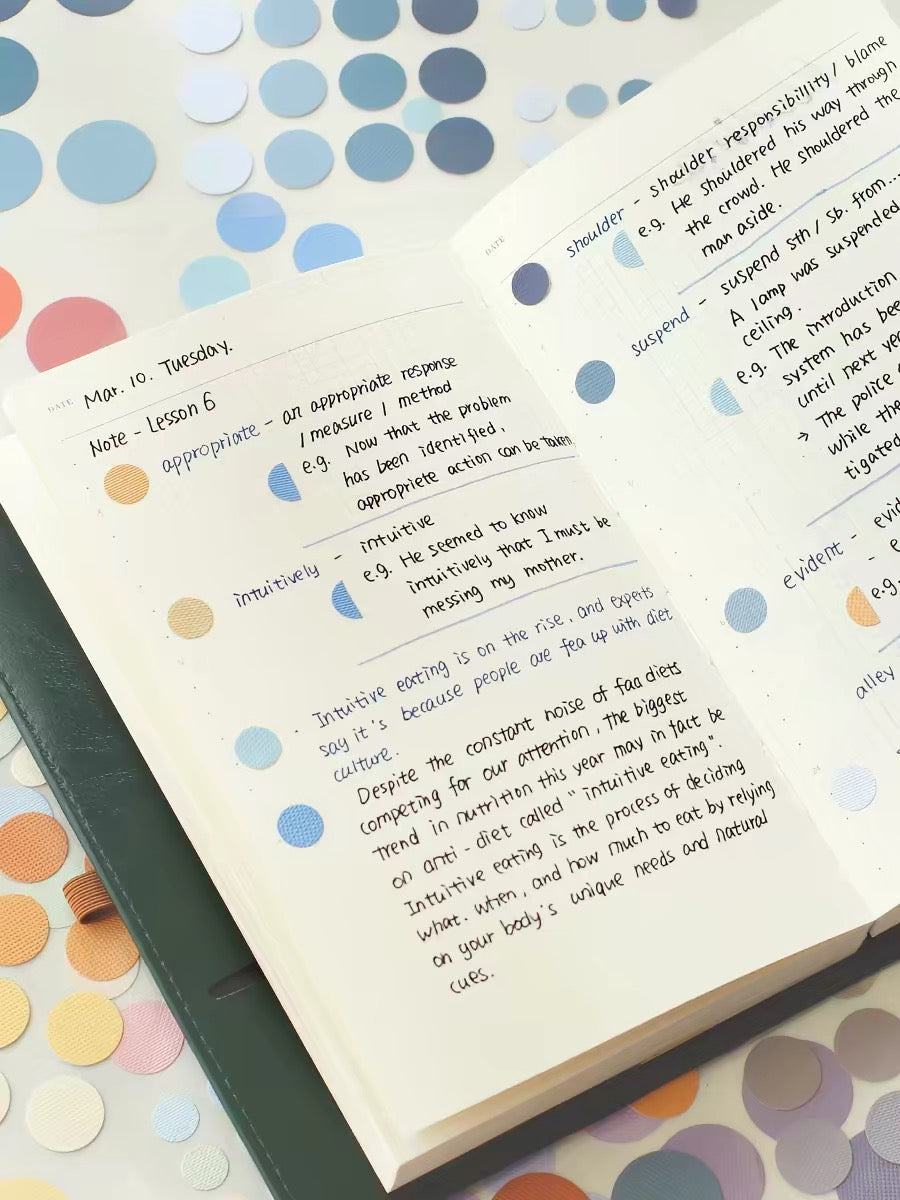 DATE
Mar. 10. Tuesday.
Note - Lesson 6
appropriate - an appropriate response
/ measure / method
e.g. Now that the problem
has been identified,
appropriete action can be taken.
intuitively - intuitive
e.g. He seemed to know
intuitively that I must be
messing my mother.
Intuitive eating is on the rise, and experts
say it's because people are fea up with diet
culture.
Despite the constant noise of faa diets
competing for our attention, the biggest
trend in nutrition this year may in fact be
an anti-diet called "intuitive eating".
Intuitive eating is the process of deciding
what. when, and how much to eat by relying
on your body's unique needs and natural
cues.
DATE
shoulder - shoulder responsibillity / blame
e.g. He shouldered his way through
the crowd. He shouldered the
man aside.
suspend - suspend sth / sb. from...
A lamp was suspended
ceiling.
e.g. The introduction
system has bee
until next ye
→ The police
while the
tigated
evident - evid
- e
e.g.
alley